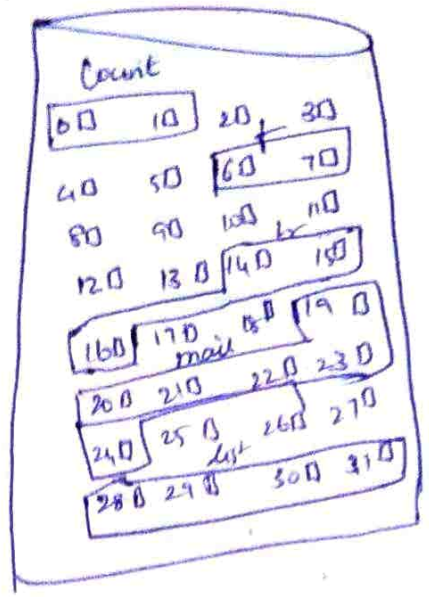 Count
0 1 2 3
f
4 5 6 7
8 9 10 11
tr
12 13 14 15
16 17 18 19
mail
20 21 22 23
24 25 26 27
list
28 29 30 31